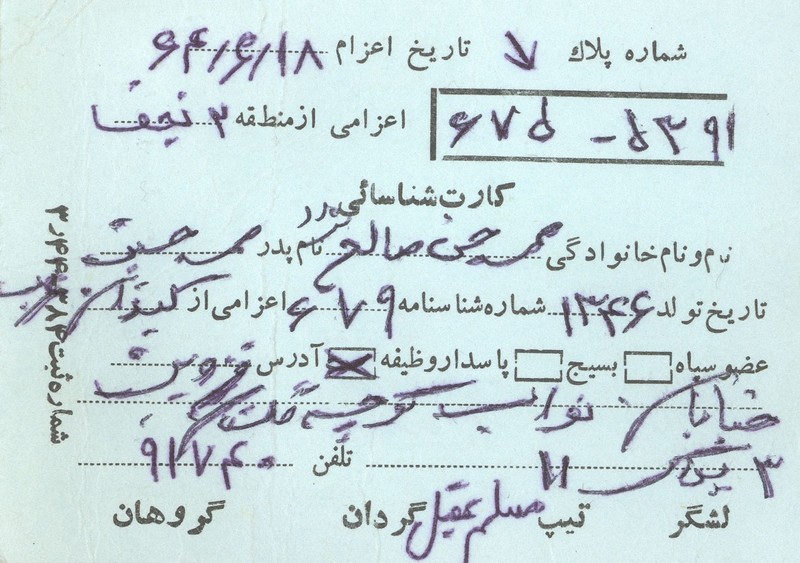 شماره پلاک ↓ تاریخ اعزام ۶۴/۶/۱۸
۶۷۵ - ۵۳۹۱ اعزامی از منطقه ۳ نجف
کارت شناسائی
نام و نام خانوادگی محمد حسن صالح نام پدر محمد حسین
تاریخ تولد ۱۳۴۶ شماره شناسنامه ۶۷۹ اعزامی از
عضو سپاه بسیج پاسدار وظیفه آدرس قزوین
خیابان نواب کوچه
۳ پلاک ۱۱ تلفن ۹۱۷۴۰
لشگر تیپ گردان مسلم عقیل گروهان
شماره ثبت